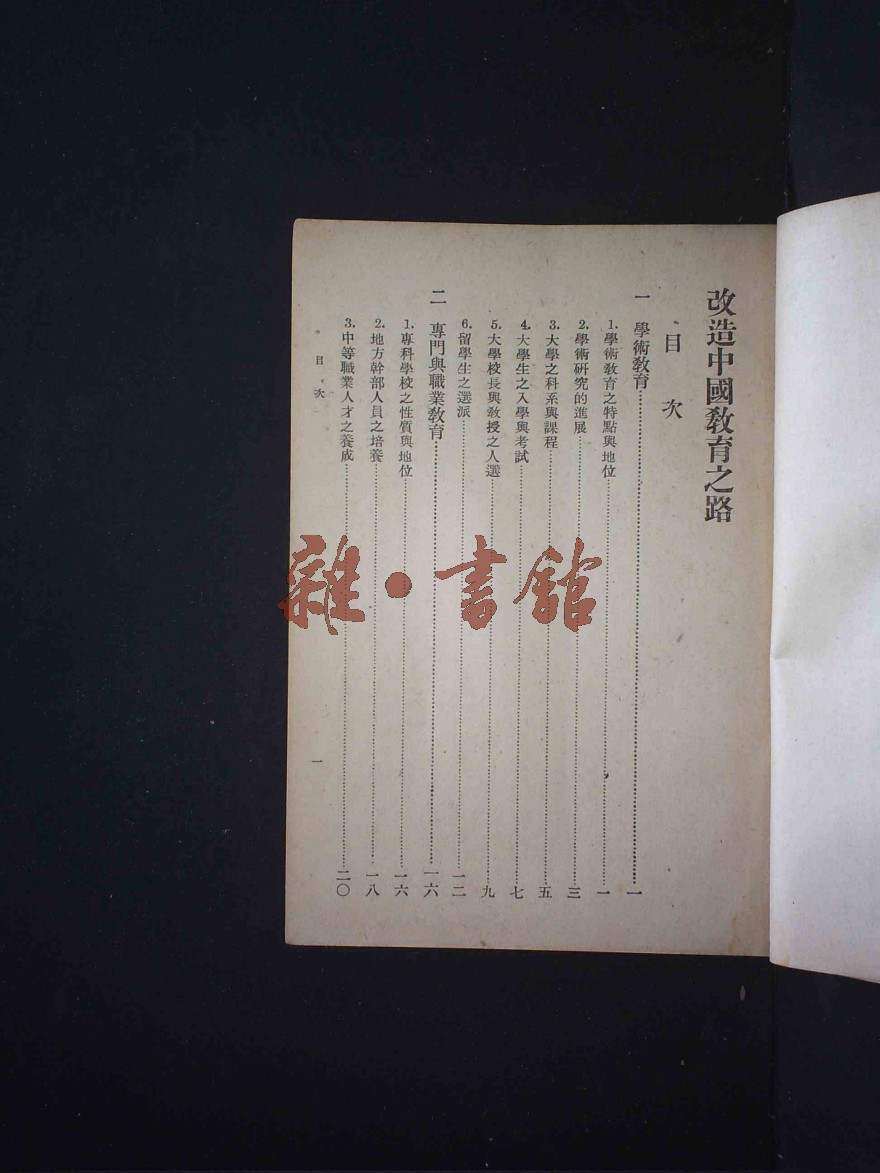 改造中國敎育之路
目次
一 學術敎育……一
1.學術敎育之特點與地位……一
2.學術硏究的進展……三
3.大學之科系與課程……五
4.大學生之入學與考試……七
5.大學校長與敎授之人選……九
6.留學生之選派……一二
二 專門與職業敎育……一六
1.專科學校之性質與地位……一六
2.地方幹部人員之培養……一八
3.中等職業人才之養成……二〇
目次 一
雜·書館